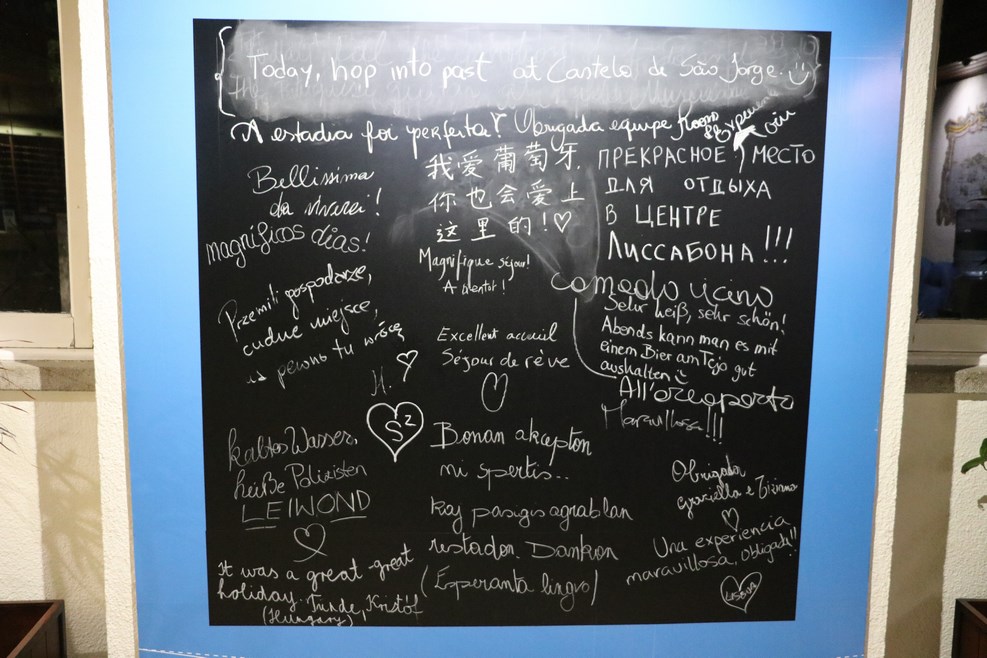 Today, hop into past at Castelo de São Jorge. :)
A estadia foi perfeita! Obrigada equipe
Bellissima
da vivere!
magníficos dias!
Przemili gospodarze,
cudne miejsce,
na pewno tu wrócę
H. ♡
我爱葡萄牙.
你也会爱上
这里的!♡
Magnifique séjour!
A bientot!
Excellent accueil
Séjour de rêve
ПРЕКРАСНОЕ :) МЕСТО
ДЛЯ ОТДЫХА
В ЦЕНТРЕ
ЛИССАБОНА!!!
comodo vicino
Sehr heiß, sehr schön!
Abends kann man es mit
einem Bier am Tejo gut
aushalten
All'areoporto
Maravillosa!!!
S²
kaltes Wasser,
heiße Polizisten
LEIWOND
It was a great-great
holiday. Tünde, Kristóf
(Hungary)
Bonan akcepton
mi spertis...
Kaj pasigis agrablan
restadon. Dankon
(Esperanta lingvo)
Obrigada
Graziella e Tiziana
♡
Una experiencia
maravillosa, obligada!!
LISBOA